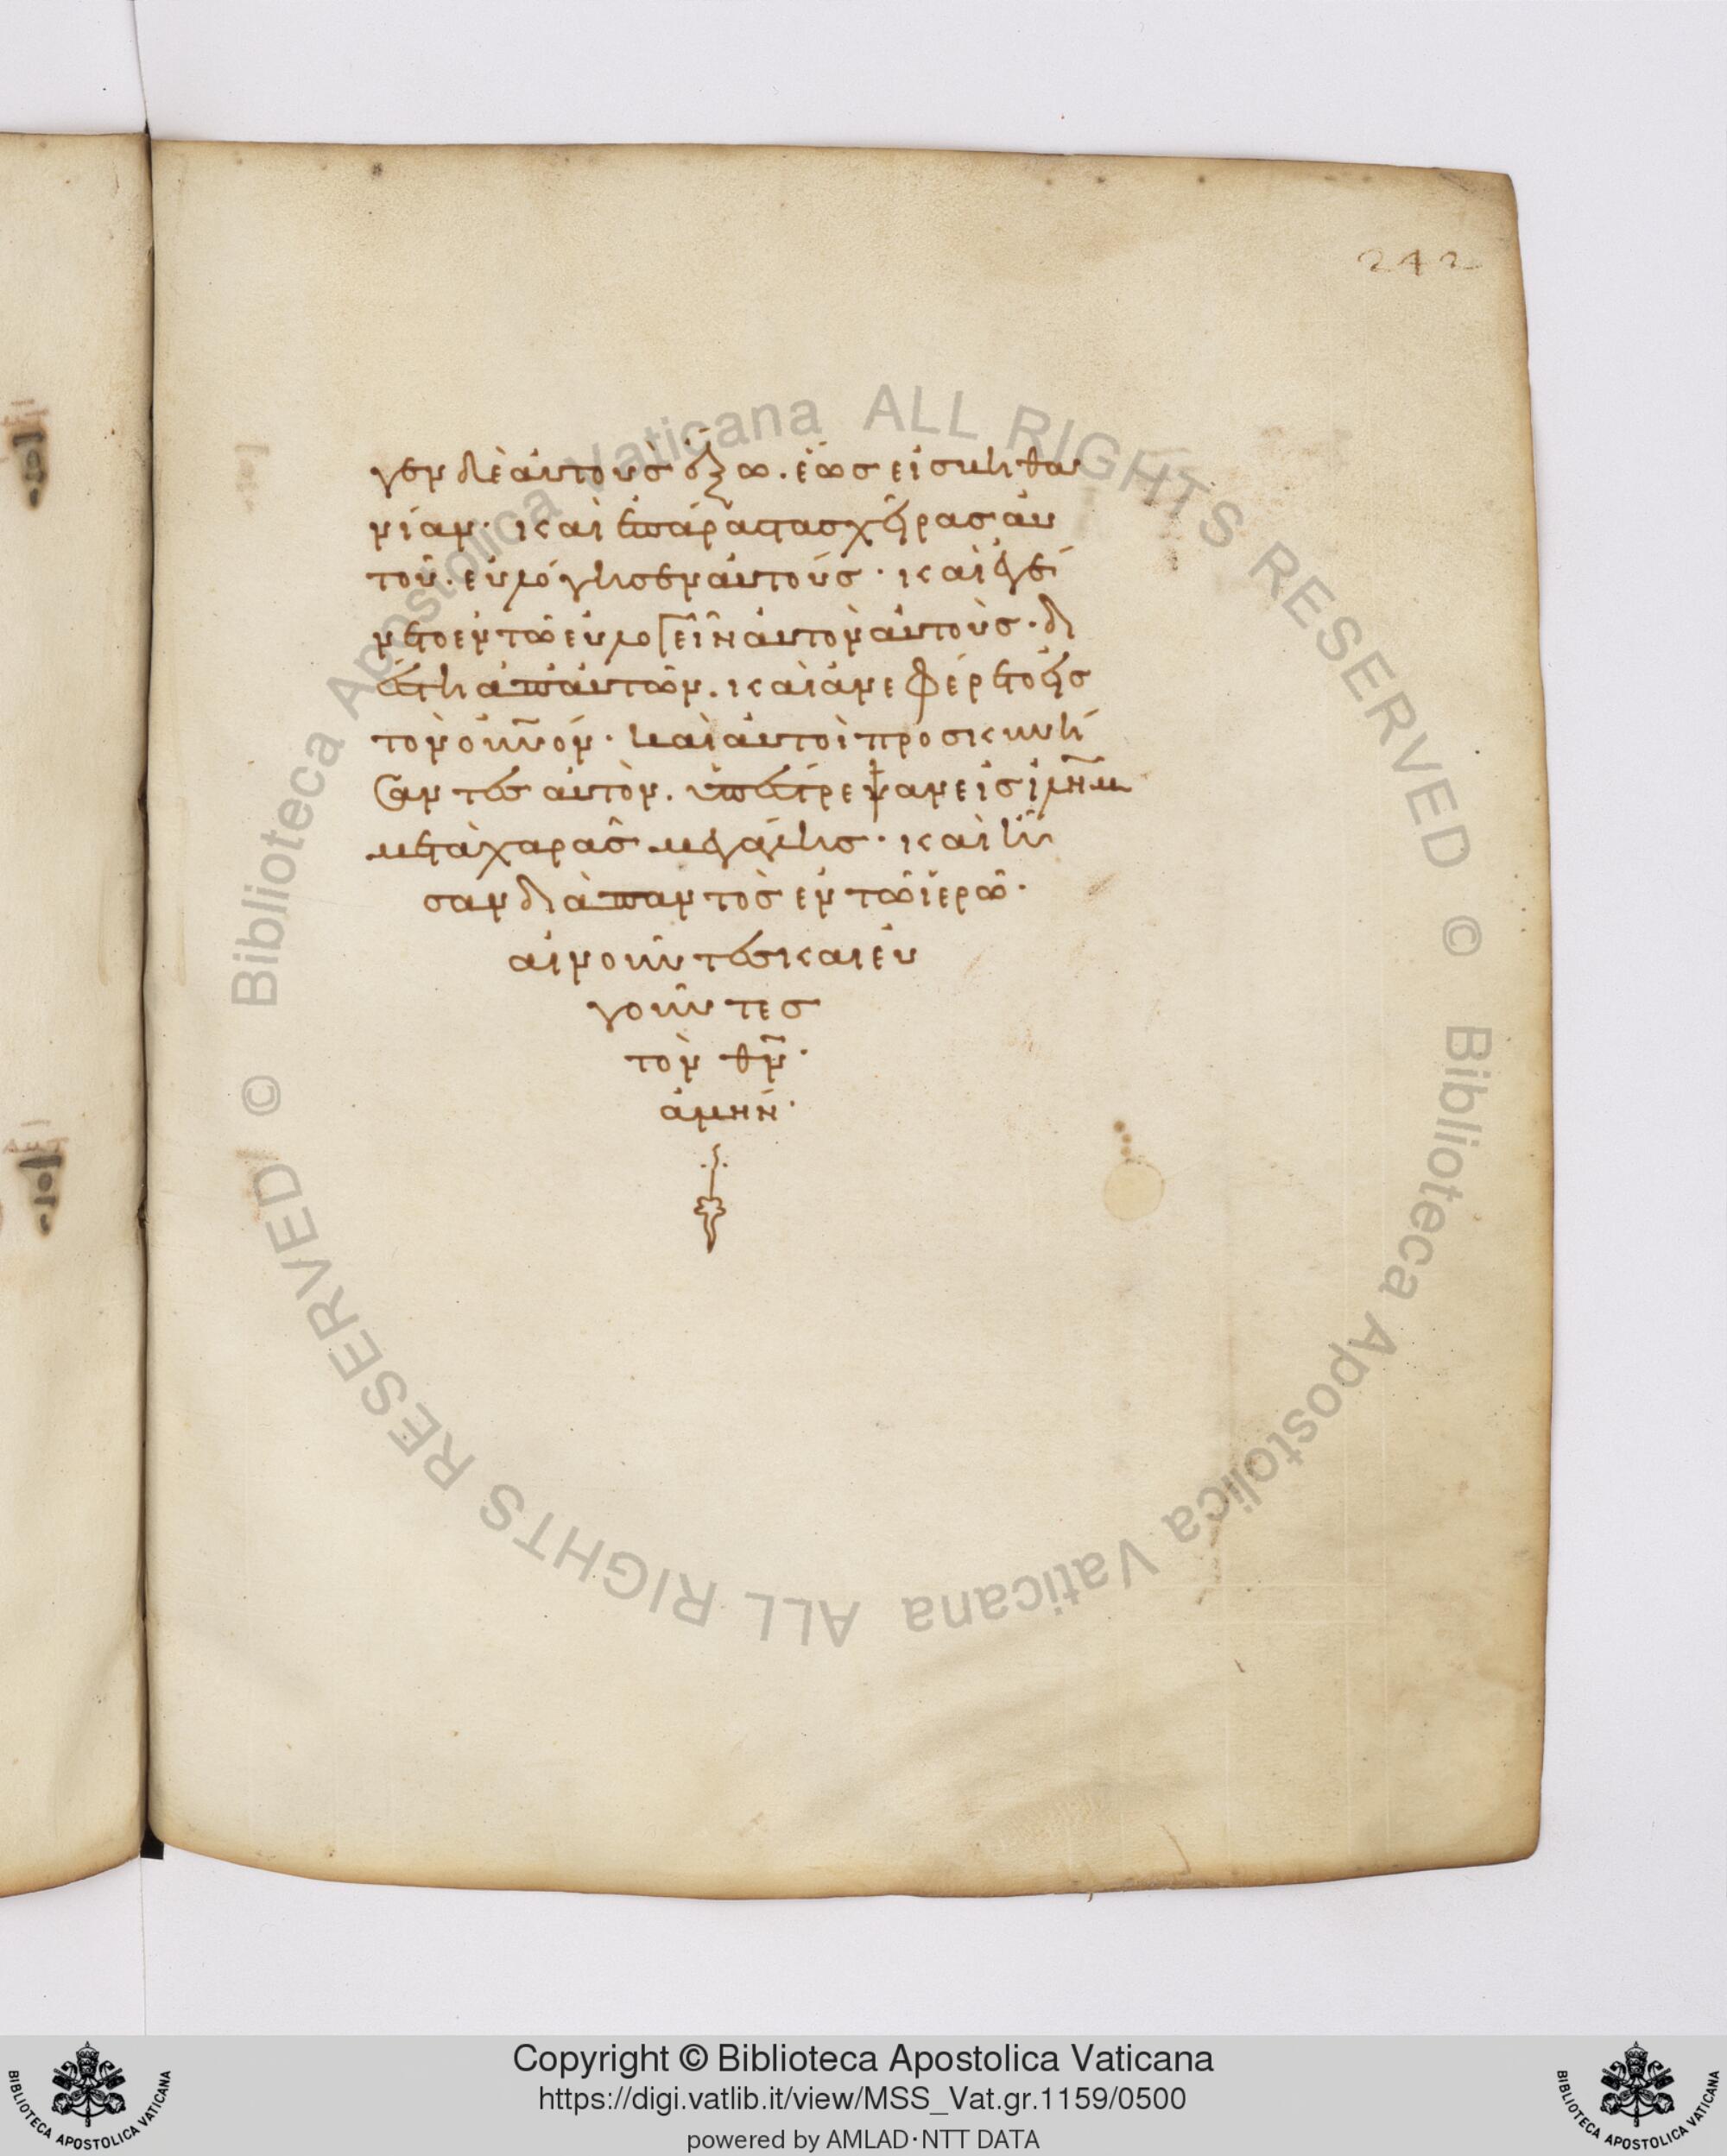 242
γεν δὲ αὐτοὺς ἔξω. ἕως εἰς βηθα
νίαν· καὶ ἐπάρας τὰς χεῖρας αὐ
τοῦ. εὐλόγησεν αὐτούς· καὶ ἐγέ
νετο ἐν τῶ εὐλογεῖν αὐτὸν αὐτοὺς· δι
έστη ἀπ' αὐτῶν. καὶ ἀνεφέρετο εἰς
τὸν οὐνόν· καὶ αὐτοὶ προσκυνή
σαντες αὐτὸν. ὑπέστρεψαν εἰς ἰλημ
μετὰ χαρᾶς μεγάλης· καὶ ἦ
σαν διὰ παντὸς ἐν τῶ ἱερῶ·
αἰνοῦντες καὶ εὐ
γοῦντες
τὸν θν·
ἀμήν·
Biblioteca Apostolica Vaticana ALL RIGHTS RESERVED ©
Biblioteca Apostolica Vaticana ALL RIGHTS RESERVED ©
Copyright © Biblioteca Apostolica Vaticana
https://digi.vatlib.it/view/MSS_Vat.gr.1159/0500
powered by AMLAD·NTT DATA
BIBLIOTECA APOSTOLICA VATICANA
BIBLIOTECA APOSTOLICA VATICANA